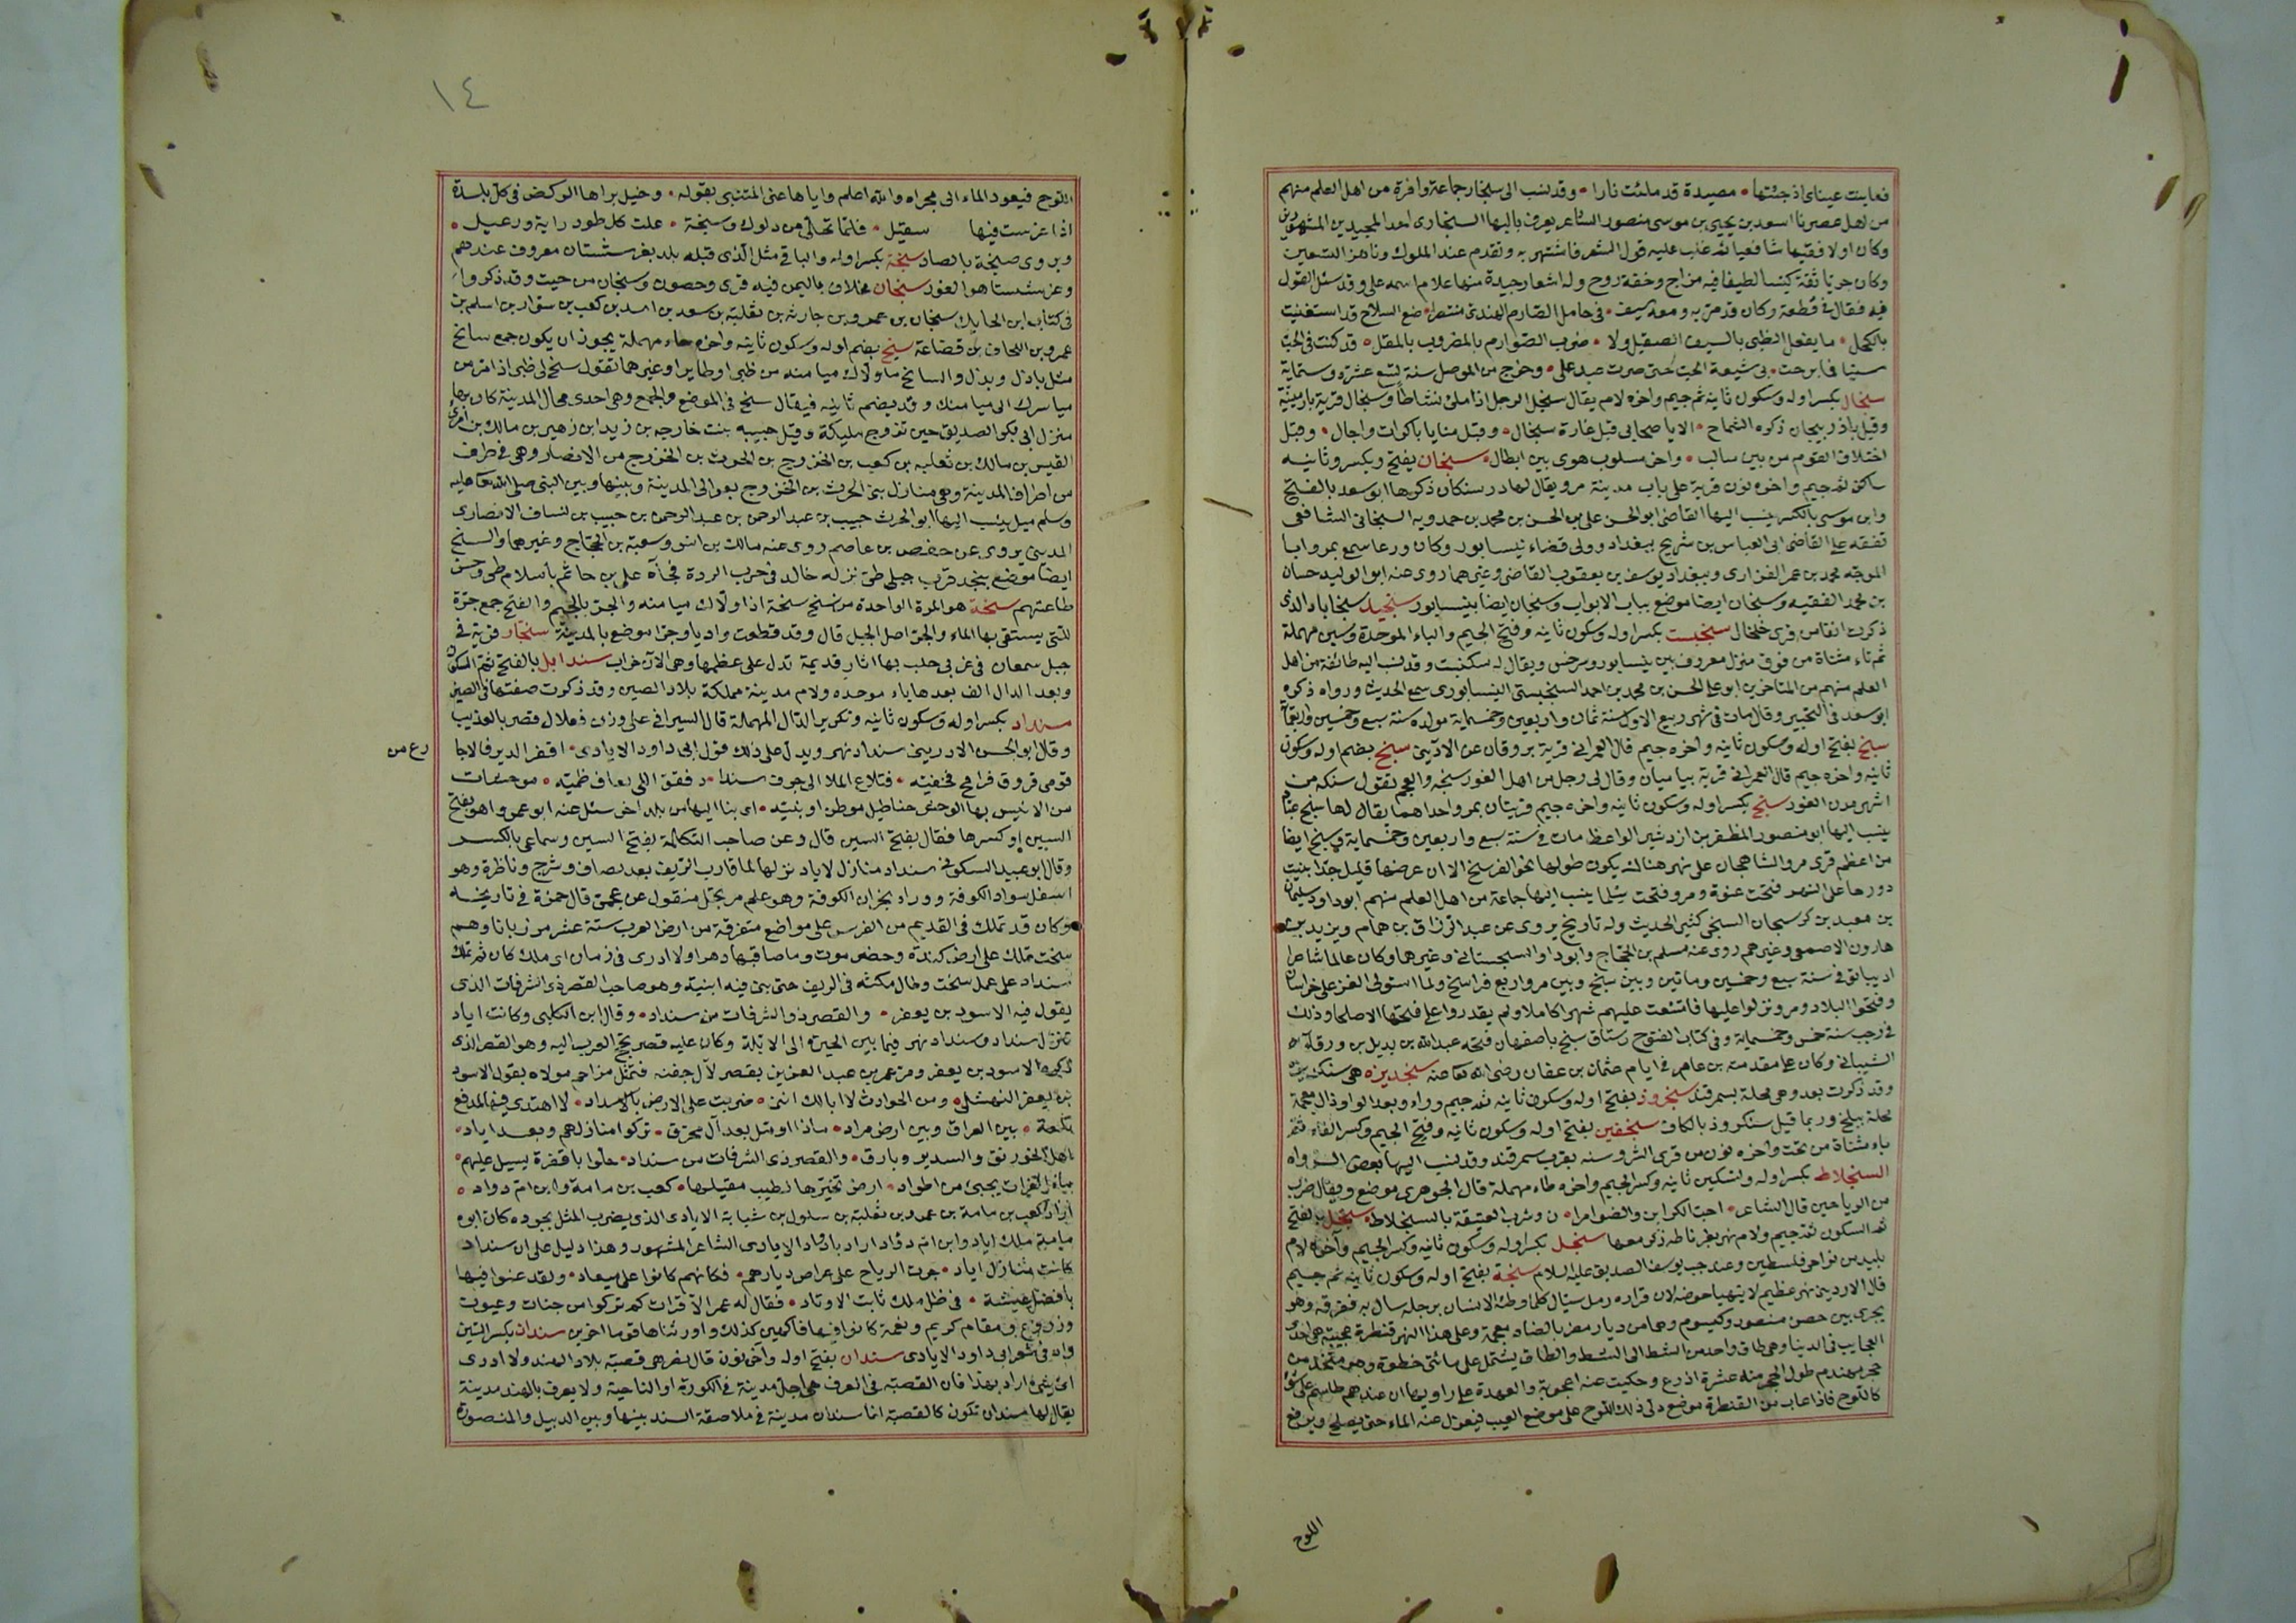 فعاينت عيناى اذ جئتها • مصيدة قد ملئت نارا • وقد نسب الى سنجار جماعة وافرة من اهل العلم منهم
من اهل عصرنا اسعد بن يحيى بن موسى منصور الشاعر يعرف بالبها السنجارى احد المجيدين المشهورين
وكان اولا فقيها شافعيا ثم غلب عليه قول الشعر فاشتهر به وتقدم عند الملوك وناهز التسعين
وكان جريا ثقة كيسا لطيفا فيه مزاج وخفة روح وله اشعار جيدة منها غلام اسمه على وقد سئل القول
فيه فقال فى قطعة وكان قد مر به ومعه سيف • فى حامل الصارم الهندى منتصرا • ضع السلاح قد استغنيت
بالكحل • ما يفعل الظبى بالسيف الصقيل ولا • ضرب الصوارم بالمضروب بالمقل • قد كنت فى الحب
سنيا فما برحت • بى شيعة الحب حتى صرت عبد على • وخرج من الموصل سنة تسع عشرة وستماية
سنجال بكسر اوله وسكون ثانيه ثم جيم واخره لام يقال سنجل الرجل اذا ملئ نشاطا وسنجال قرية بارمينية
وقيل باذربيجان ذكره الشماخ • الا يا صحابى قبل غارة سنجال • وقبل منايا باكرات واجال • وقبل
اختلاف القوم من بين سالب • واخر مسلوب هوى بين ابطال • سنجان بفتح ويكسر وثانيه
ساكن ثم جيم واخره نون قرية على باب مدينة مرو يقال لها درسنكان ذكرها ابو سعد بالفتح
وابن موسى بالكسر ينسب اليها القاضى ابو الحسن على بن الحسن بن محمد بن حمدويه السنجانى الشافعى
تفقه على القاضى ابى العباس بن شريح ببغداد وولى قضاء نيسابور وكان ورعا سمع بمرو ابا
الموجه محمد بن عمر الفزارى وببغداد يوسف بن يعقوب القاضى وغيرهما روى عنه ابو الوليد حسان
بن محمد الفقيه وسنجان ايضا موضع بباب الابواب وسنجان ايضا بنيسابور سنجبد سنجاباد الذى
ذكرت انفا من قرى خلخال سنجبست بكسر اوله وسكون ثانيه وفتح الجيم والباء الموحدة وسين مهملة
ثم تاء مثناة من فوق منزل معروف بين نيسابور وسرخس ويقال له سكنبست وقد نسب اليه طائفة من اهل
العلم منهم من المتاخرين ابو على الحسن بن محمد بن احمد السنجبستى النيسابورى سمع الحديث ورواه ذكره
ابو سعد فى التحبير وقال مات فى شهر ربيع الاول سنة ثمان واربعين وخمسماية مولده سنة سبع وخمسين واربعمأة
سنج بفتح اوله وسكون ثانيه واخره جيم قال العمرانى قرية بروقان عن الاديبى سنج بضم اوله وسكون
ثانيه واخره جيم قال العمرانى قرية بباميان وقال لى رجل من اهل الغور سنجه والعجم تقول سنكه من
اشهر مدن الغور سنج بكسر اوله وسكون ثانيه واخره جيم قريتان بمرو احداهما يقال لها سنج عباد
ينسب اليها ابو منصور المظفر بن اردشير الواعظ مات فى سنة سبع واربعين وخمسماية وسنج ايضا
من اعظم قرى مرو الشاهجان على نهر هناك يكون طولها نحو الفرسخ الا ان عرضها قليل جدا بنيت
دورها على النهر فتحت عنوة ومرو فتحت سلما ينسب اليها جماعة من اهل العلم منهم ابو داود سليمان
بن معبد بن كوسجان السنجى كثير الحديث وله تاريخ يروى عن عبد الرزاق بن همام ويزيد بن
هارون الاصمعى وغيرهم روى عنه مسلم بن الحجاج وابو داود السجستانى وغيرهما وكان عالما شاعرا
اديبا توفى سنة سبع وخمسين وماتين وبين سنج وبين مرو اربع فراسخ ولما استولى الغز على خراسان
وفتحوا البلاد ومرو نزلوا عليها فامتنعت عليهم شهرا كاملا ولم يقدروا على فتحها الا صلحا وذلك
فى رجب سنة خمس وخمسماية وفى كتاب الفتوح رستاق سنج باصفهان فتحه عبد الله بن بديل بن ورقاء
الشيبانى وكان على مقدمة بن عامر فى ايام عثمان بن عفان رضى الله تعا عنه سنجديزه هى سنكديزه
وقد ذكرت بعد وهى محلة بسمرقند سنجروذ بفتح اوله وسكون ثانيه ثم جيم وراء وبعد الواو ذال معجمة
محلة ببلخ وربما قيل سنكروذ بالكاف سنجفين بفتح اوله وسكون ثانيه وفتح الجيم وكسر الفاء ثم
ياء مثناة من تحت واخره نون من قرى اشروسنه بقرب سمرقند وقد نسب اليها بعض الرواه
السنجلاط بكسر اوله وتسكين ثانيه وكسر الجيم واخره طاء مهملة قال الجوهرى موضع ويقال ضرب
من الرياحين قال الشاعر • احب الكراين والضوامرا • ن وشرب العتيقة بالسنجلاط • سنجل بالفتح
ثم السكون ثم جيم ولام نهر بغرناطه ذكر معها سنجل بكسر اوله وسكون ثانيه وكسر الجيم وآخره لام
بليد من نواحى فلسطين وعنده جب يوسف الصديق عليه السلام سنجة بفتح اوله وسكون ثانيه ثم جيم
قال الاديبى نهر عظيم لا يتهيا خوضه لان قراره رمل سيال كلما وطئه الانسان برجله سال به فغرقه وهو
يجرى بين حصن منصور وكيسوم وهما من ديار مضر بالضاد معجمة وعلى هذا النهر قنطرة عجيبة هى احد
العجايب فى الدنيا وهى طاق واحد من الشط الى الشط والطاق يشتمل على مائتى خطوة وهو متخذ من
حجر مهندم طول الحجر منه عشرة اذرع وحكيت عنه اعجوبة والعهدة على راويها ان عندهم طلسم على شئ
كاللوح فاذا عاب من القنطرة موضع دلى ذلك اللوح على موضع العيب فيعزل عنه الماء حتى يصلح ويرفع
اللوح
١٤
اللوح فيعود الماء الى مجراه والله اعلم واياها عنى المتنبى بقوله • وخيل براها الركض فى كل بلدة
اذا عرست فيها سقيل • فلما تجلى من دلوك وسنجة • علت كل طود راية ورعيل •
ويروى صنجة بالصاد سنجة بكسر اوله والباقى مثل الذى قبله بلد بغرشستان معروف عندهم
وغرشستان هو الغور سنحان مخلاف باليمن فيه قرى وحصون وسنحان من حيت وقد ذكروا
فى كتاب ابن الحايك سنحان بن عمرو بن حارثه بن ثعلبة بن سعد بن اسد بن كعب بن سوار بن اسلم بن
عمرو بن الحاف بن قضاعة سنح بضم اوله وسكون ثانيه واخره حاء مهملة يجوز ان يكون جمع سانح
مثل باذل وبذل والسانح ما ولاك ميامنه من ظبى او طاير او غيرهما تقول سنح لى ظبى اذا مر من
مياسرك الى ميامنك وقد يضم ثانيه فيقال سنح فى الموضع والجمع وهى احدى محال المدينة كان بها
منزل ابى بكر الصديق حين تزوج مليكة وقيل حبيبه بنت خارجه بن زيد بن زهير بن مالك بن امرئ
القيس بن مالك بن ثعلبه بن كعب بن الخزرج بن الحرث بن الخزرج من الانصار وهى فى طرف
من اطراف المدينة وهى منازل بنى الحرث بن الخزرج بعوالى المدينة وبينها وبين النبى صلى الله تعا عليه
وسلم ميل ينسب اليها ابو الحرث حبيب بن عبد الرحمن بن عبد الرحمن بن حبيب بن لساف الانصارى
المدينى يروى عن حفص بن عاصم روى عنه مالك بن انس وسعبة بن الحجاج وغيرهما والسنح
ايضا موضع بنجد قرب جبلى طى نزله خالد فى حرب الردة فجاءه على بن حاتم باسلام طى وحسن
طاعتهم سنحة هو المرة الواحدة من سنح سنحة اذا ولاك ميامنه والجر بالجيم والفتح جمع جرة
للتى يستقى بها الماء والجر اصل الجبل قال وقد قطعت واديا وجرا موضع بالمدينة سنجار قرية فى
جبل سمعان فى غربى حلب بها اثار قديمة تدل على عظمها وهى الآن خراب سندابل بالفتح ثم السكون
وبعد الدال الف بعدها باء موحده ولام مدينة مملكة بلاد الصين وقد ذكرت صفتها فى الصين
سنداد بكسر اوله وسكون ثانيه وتكرير الدال المهملة قال السيرافى على وزن فعلال قصر بالعذيب
وقال ابو الحسن الاديبى سنداد نهر ويدل على ذلك قول ابى داود الايادى • اقفر الدير فالاجا
رع من
قومى فروق فرامح فخفيه • فتلاع الملا الى جرف سندا • د فقوق اللى نعاف طميه • موحشات
من الانيس بها الوحش خناطيل موطن او بنيه • اى بنا اليها من بلد اخر سئل عنه ابو عمرو اهو بفتح
السين او كسرها فقال بفتح السين قال وعن صاحب التكملة بفتح السين وسماعى بالكسر
وقال ابو عبيد السكونى سنداد منازل لاياد نزلها لما قارب الريف بعد لصاف وشرج وناظرة وهو
اسفل سواد الكوفة ووراء نجران الكوفة وهو علم مرتجل منقول عن عجمى قال حمزة فى تاريخه
وكان قد تملك فى القديم من الفرس على مواضع متفرقة من ارض العرب ستة عشر مرزبانا وهم
سخت تملك على ارض كندة وحضرموت وما صاقبها دهرا ولا ادرى فى زمان اى ملك كان ثم تملك
سنداد على عمل سخت وطال مكثه فى الريف حتى بنى فيه ابنية وهو صاحب القصر ذى الشرفات الذى
يقول فيه الاسود بن يعفر • والقصر ذو الشرفات من سنداد • وقال ابن الكلبى وكانت اياد
تنزل سنداد وسنداد نهر فيما بين الحيرة الى الابلة وكان عليه قصر تحج العرب اليه وهو القصر الذى
ذكره الاسود بن يعفر ومر عمر بن عبد العزيز بقصر لآل جفنه فتمثل مزاحم مولاه بقول الاسود
بن يعفر النهشلى • ومن الحوادث لا ابالك اننى • ضربت على الارض بالاسداد • لا اهتدى فيها لمدفع
تلعة • بين العراق وبين ارض مراد • ماذا اومل بعد آل محرق • تركوا منازلهم وبعد اياد •
اهل الخورنق والسدير وبارق • والقصر ذى الشرفات من سنداد • حلوا بانقرة يسيل عليهم •
ماء الفرات يجيئ من اطواد • ارض تخيرها لطيب مقيلها • كعب بن مامة وابن ام دواد •
اراد كعب بن مامة بن عمرو بن ثعلبة بن سلول بن شبابة الايادى الذى يضرب المثل بجوده كان ابوه
مامة ملك اياد وابن ام دؤاد اراد ابا دؤاد الايادى الشاعر المشهور وهذا دليل على ان سنداد
كانت منازل اياد • جرت الرياح على عراص ديارهم • فكانهم كانوا على ميعاد • ولقد غنوا فيها
بافضل عيشة • فى ظل ملك ثابت الاوتاد • فقال له عمر الا قرات كم تركوا من جنات وعيون
وزروع ومقام كريم ونعمة كانوا فيها فاكهين كذلك واورثناها قوما اخرين سندان بكسر السين
واد فى شعر ابى داود الايادى سندان بفتح اوله واخره نون قال نصر هى قصبة بلاد الهند ولا ادرى
اى شئ اراد بهذا فان القصبة فى العرف هى اجل مدينة فى الكورة او الناحية ولا يعرف بالهند مدينة
يقال لها سندان تكون كالقصبة انما سندان مدينة فى ملاصقة السند بينها وبين الدبيل والمنصورة